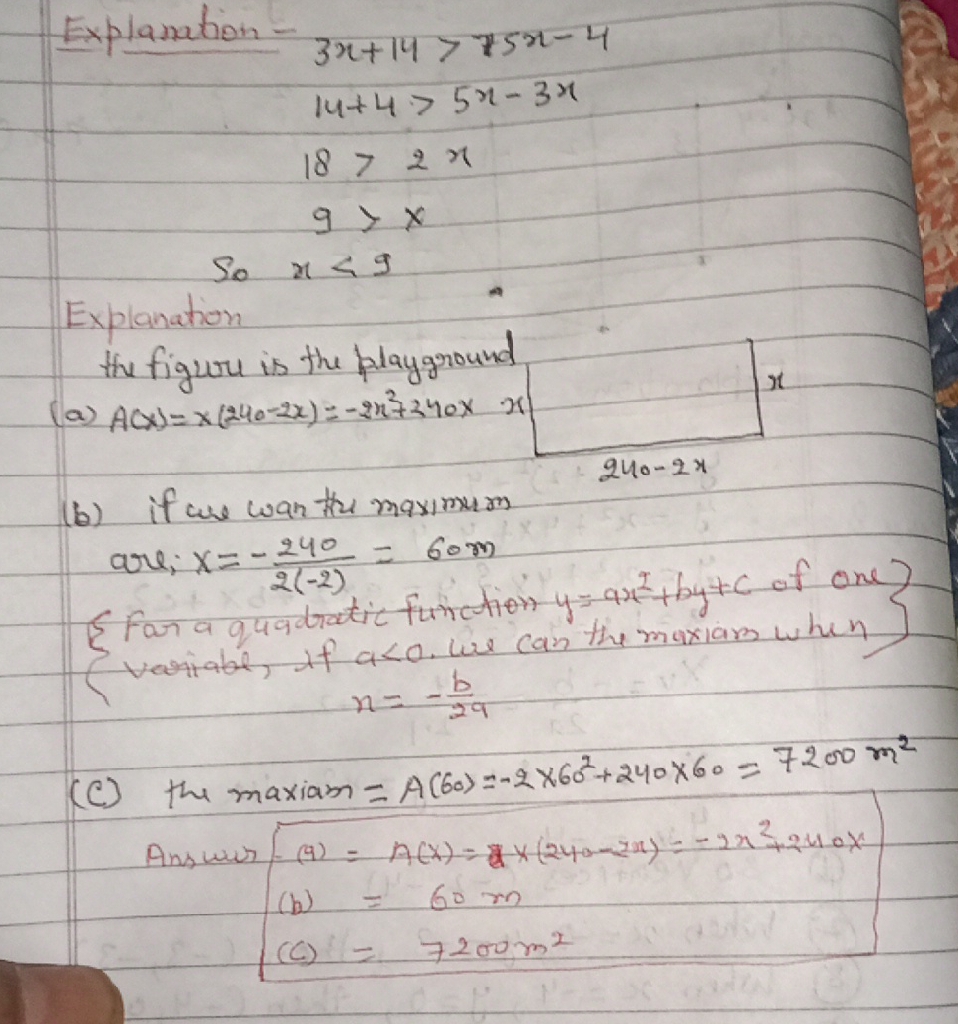 Explanation -
3x+14 > 5x-4
14+4 > 5x-3x
18 > 2x
9 > x
So x < 9
Explanation
the figuru is the playground
(a) A(x) = x(240-2x) = -2x²+240x x
x
240-2x
(b) if we wan the maximum
are; x = - 240/2(-2) = 60m
{ For a quadratic function y = ax²+by+c of one }
{ variable, if a<0. we can the maxiam when }
x = - b/2a
(c) the maxiam = A(60) = -2×60²+240×60 = 7200 m²
Answer (a) = A(x) = x(240-2x) = -2x²+240x
(b) = 60 m
(c) = 7200m²